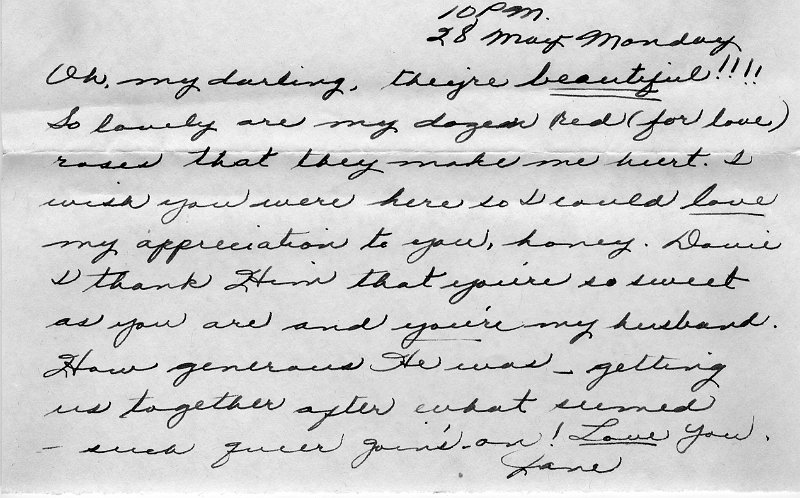 10 P.M.
28 May Monday
Oh, my darling, they're beautiful!!!!
So lovely are my dozen Red (for love)
roses that they make me hurt. I
wish you were here so I could love
my appreciation to you, honey. Davie
I thank Him that you're so sweet
as you are and you're my husband.
How generous He was - getting
us together after what seemed
- such queer goin's-on! Love You.
Jane